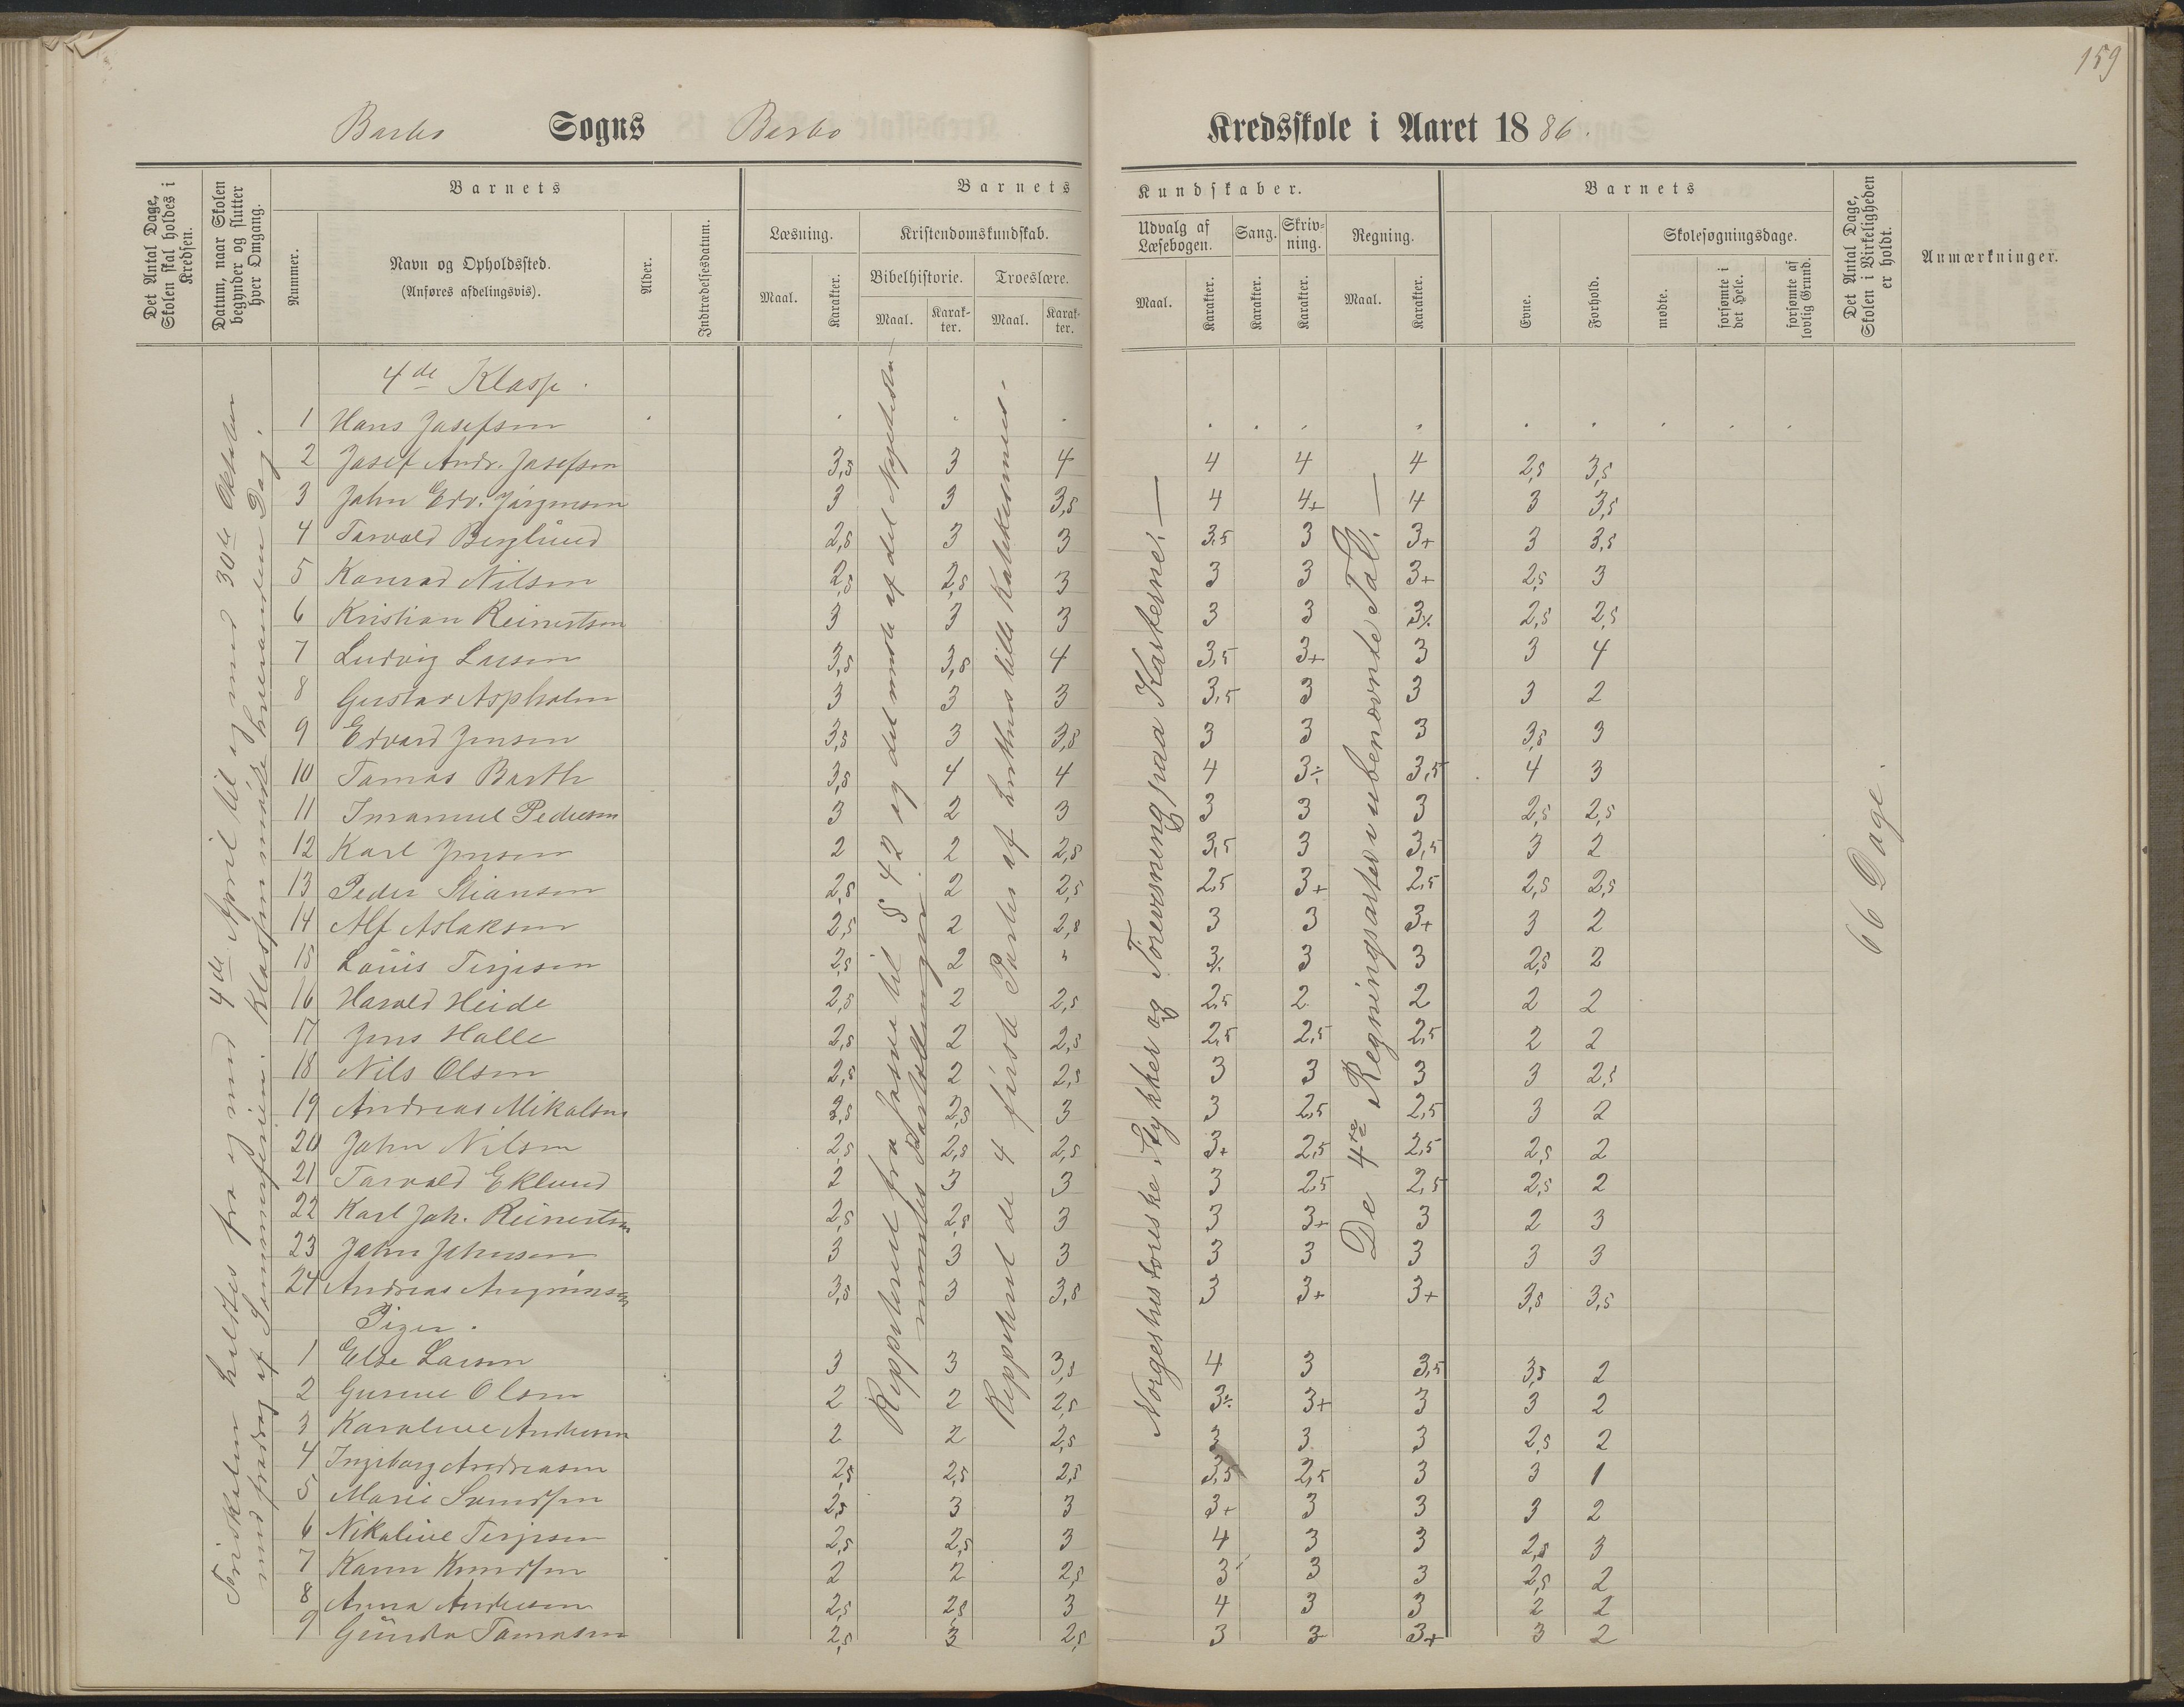 159
Barbo Sogns Barbo Kredsskole i Aaret 1886.
Det Antal Dage, Skolen skal holdes i Kredsen.
Datum, naar Skolen begynder og slutter hver Omgang.
Barnets
Nummer.
Navn og Opholdssted.
(Anføres afdelingsvis).
Alder.
Indtrædelsesdatum.
Barnets Kundskaber.
Læsning.
Maal.
Karakter.
Kristendomskundskab.
Bibelhistorie.
Maal.
Karakter.
Troeslære.
Maal.
Karakter.
Udvalg af Læsebogen.
Maal.
Karakter.
Sang.
Karakter.
Skrivning.
Karakter.
Regning.
Maal.
Karakter.
Barnets
Evne.
Forhold.
Skolesøgningsdage.
mødte.
forsømte i det Hele.
forsømte af lovlig Grund.
Det Antal Dage, Skolen i Virkeligheden er holdt.
Anmærkninger.
4de Klasse.
1 Hans Josefsen
2 Josef Andr. Josefsen 3,5 3 4 4 4 4 2,5 3,5
3 John Edv. Jørgensen 3 3 3,5 4 4+ 4 3 3,5
4 Torvald Berglund 2,5 3 3 3,5 3 3+ 3 3,5
5 Konrad Nilsen 2,5 2,5 3 3 3 3+ 2,5 3
6 Kristian Reinertsen 3 3 3 3 3 3⁒ 2,5 2,5
7 Ludvig Larsen 3,5 3,5 4 3,5 3+ 3 3 4
8 Gustav Aspholm 3 3 3 3,5 3 3 3 2
9 Edvard Jensen 3,5 3 3,5 3 3 3 3,5 3
10 Tomas Barth 3,5 4 4 4 3÷ 3,5 4 3
11 Imanuel Pedersen 3 2 3 3 3 3 2,5 2,5
12 Karl Jensen 2 2 2,5 3,5 3 3,5 3 2
13 Peder Stiansen 2,5 2 2,5 2,5 3+ 2,5 2,5 2,5
14 Alf Aslaksen 2,5 2 2,5 3 3 3+ 3 2
15 Louis Terjesen 2,5 2 " 3⁒ 3 3 2,5 2
16 Harald Heide 2,5 2 2,5 2,5 2 2 2 2
17 Jens Halle 2,5 2 2,5 2,5 2,5 2,5 2 2
18 Nils Olsen 2,5 2 2,5 3 3 3 3 2,5
19 Andreas Mikalsen 2,5 2,5 3 3 2,5 2,5 3 2
20 John Nilsen 2,5 2,5 2,5 3+ 2,5 2,5 2,5 2
21 Torvald Eklund 2 3 3 3 2,5 2,5 2,5 2
22 Karl Joh. Reinertsen 2,5 2,5 3 3 3+ 3 2 3
23 John Johnsen 3 3 3 3 3 3 3 3
24 Andreas 3,5 3 3,5 3 3+ 3+ 3,5 3,5
Piger.
1 Else Larsen 3 3 3,5 4 3 3,5 3,5 2
2 Gunne Olsen 2 2 2,5 3÷ 3+ 3 3 2
3 Karoline Andersen 2 2 2,5 3 3 3 2,5 2
4 Ingeborg Andreasen 2,5 2,5 2,5 3,5 2,5 3 3 1
5 Marie Svendsen 2,5 3 3 3+ 3 3 3 2
6 Nikoline Terjesen 2,5 2,5 3 4 3 3 2,5 3
7 Karen Knudsen 2 2 2,5 3 3 3 2,5 2
8 Anna Andersen 2,5 2,5 3 4 3 3 2 2
9 Gunda Tomasen 2,5 3 2,5 3 3 3+ 3 2
holdtes fra og med 4de April til og med 30te Oktober
med fradrag af Sommerferien. Klassen møder hveranden Dag.
Reppeteret fra Josva til § 42 og det meste af det Nytestamentes Fortællinger.
Reppeteret de 4 første Parter af Luthers lille Katekismus.
Norgeshistoriske Stykker og Forevisning paa Karterne.
De 4re Regningsarter i ubenævnte Tal.
66 Dage.